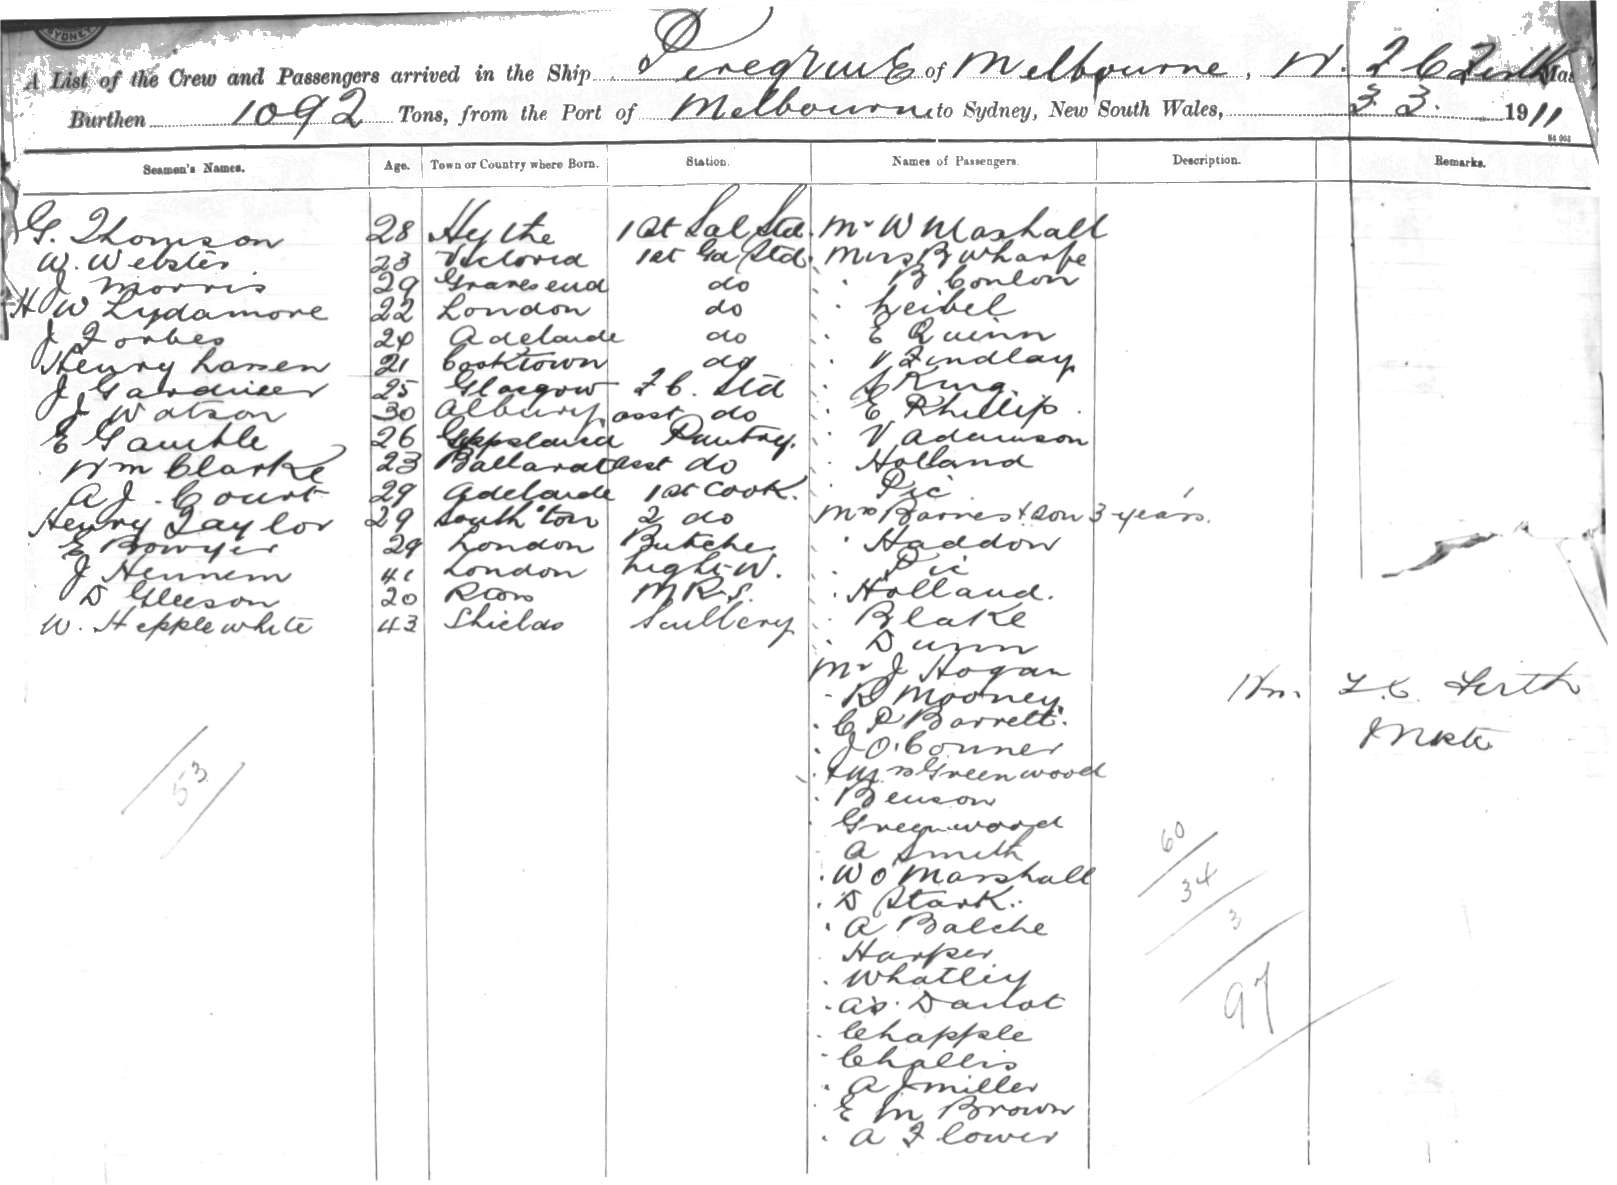 SYDNEY
A List of the Crew and Passengers arrived in the Ship Peregrine of Melbourne, W. F C Firth Mas
Burthen 1092 Tons, from the Port of Melbourne to Sydney, New South Wales, 3. 3. 1911
Seamen's Names. Age. Town or Country where Born. Station. Names of Passengers. Description. Remarks.
G. Thomson 28 Hythe 1st Sal Std. Mr W Mashall
W. Webster 23 Victoria 1st Std. Miss B Wharfe
J Morris 29 Gravesend do " B Conlon
H W Lydamore 22 London do " Leibel
J Forbes 24 Adelaide do " E Quinn
Henry Larsen 21 Cooktown do " V Findlay
J Gardiner 25 Glasgow F.C. Std " King
J Watson 30 Albury asst do " E Phillips
E Gamble 26 Gippsland Pantry. " V Adamson
Wm Clarke 23 Ballarat asst do " Holland
A J. Court 29 Adelaide 1st Cook. " Pic
Henry Taylor 29 South'ton 2 do Mrs Barnes & son 3 years.
E Bowyer 29 London Butcher " Haddon
J Hennem 41 London Light-W. " Pic
D Gleeson 20 M.R.S. " Holland.
W. Hepplewhite 43 Shields Scullery " Blake
" Dunn
Mr J Hogan
" D Mooney
Wm. F. C. Firth
" C P Barrett.
" J O'Conner
" & Mrs Greenwood
53
" Benson
Greenwood
60
A Smith
" W O Marshall
34
" D Stark.
" A Balche
3
Harper
" Whatley
97
" Danot
" Chapple
" Challis
" A J Miller
" E M Brown
" A F Cower